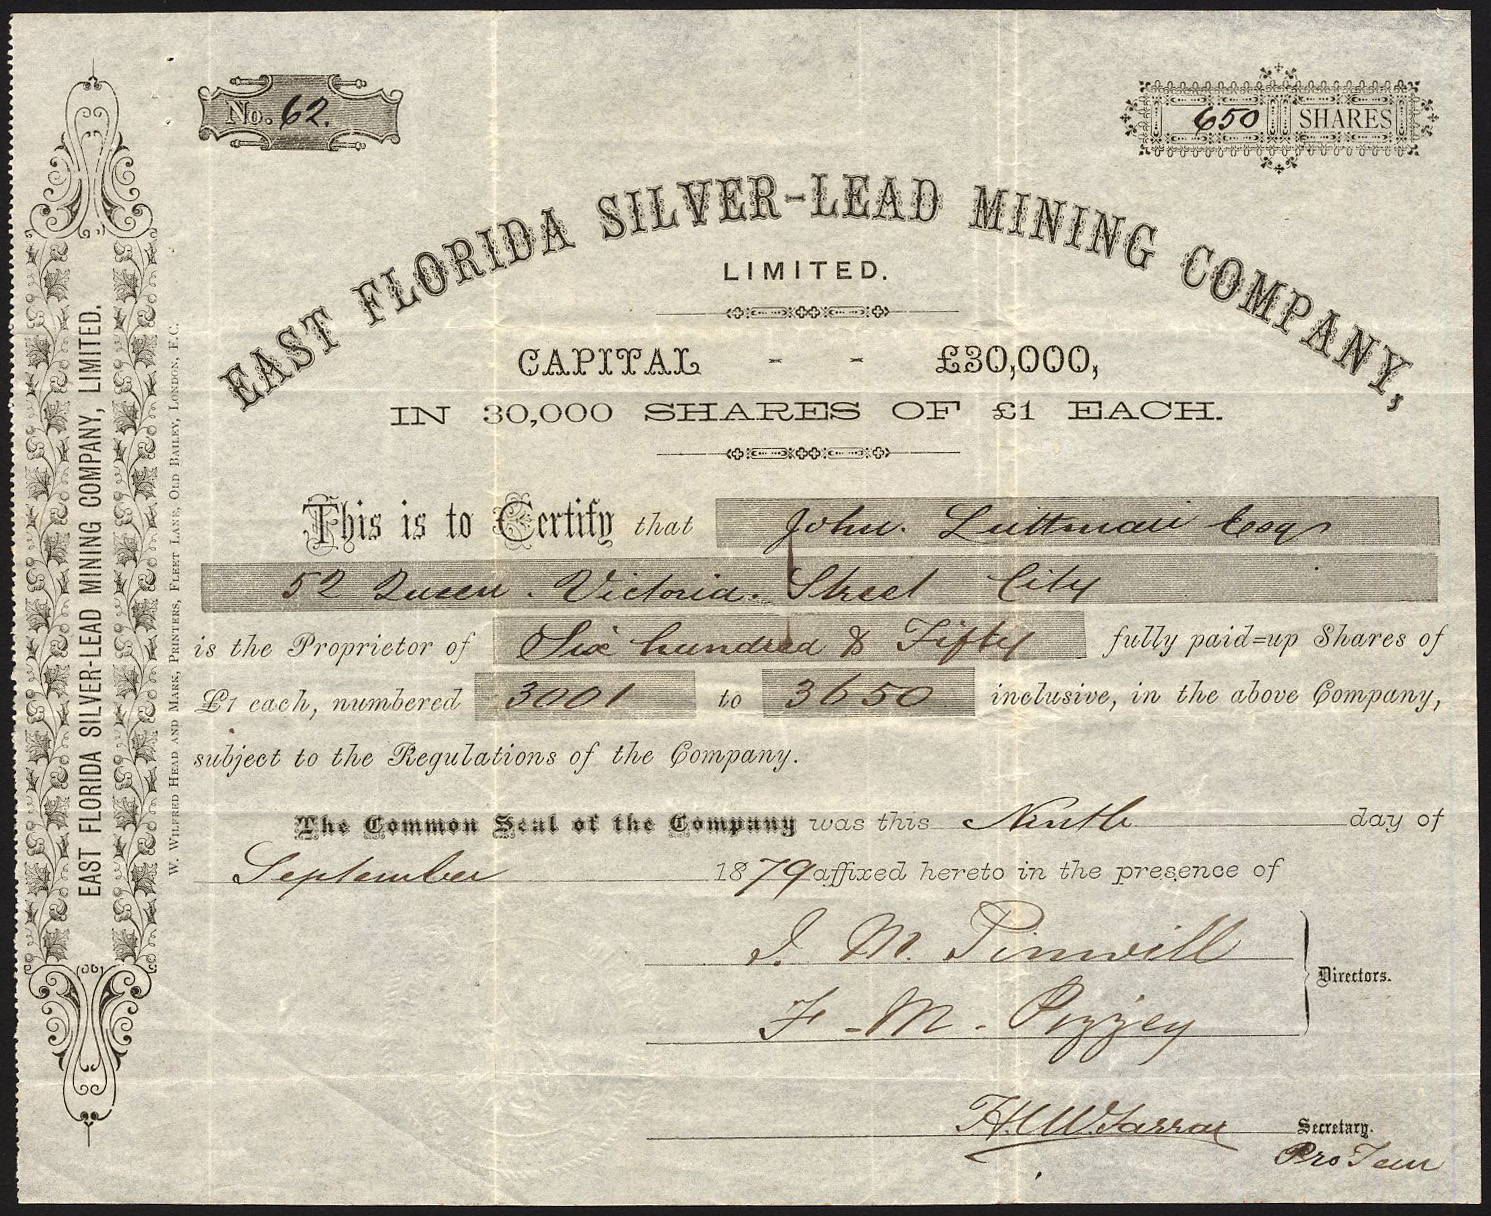 No. 62.
650 SHARES
EAST FLORIDA SILVER-LEAD MINING COMPANY,
LIMITED.
CAPITAL - - £30,000,
IN 30,000 SHARES OF £1 EACH.
This is to Certify that John. Luttman Esqr
52 Queen. Victoria. Street City
is the Proprietor of Six hundred & Fifty fully paid=up Shares of
£1 each, numbered 3001 to 3650 inclusive, in the above Company,
subject to the Regulations of the Company.
The Common Seal of the Company was this Ninth day of
September 1879 affixed hereto in the presence of
J. M. Pinwill
F - M - Pizzey
Directors.
Secretary.
Pro Tem
EAST FLORIDA SILVER-LEAD MINING COMPANY, LIMITED.
W. WILFRED HEAD AND MARK, PRINTERS, FLEET LANE, OLD BAILEY, LONDON, E.C.